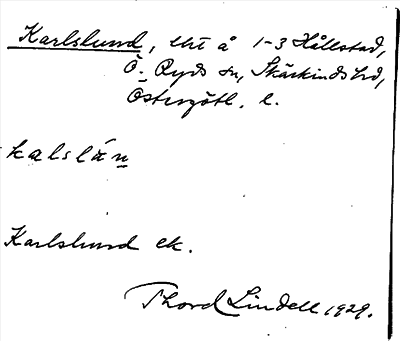 Karlslund, tht å 1-3 Hållstad,
Ö. Ryds sn, Skärkinds hd,
Östergötl. l.
kalslän
Karlslund ek.
Thord Lindell 1929.